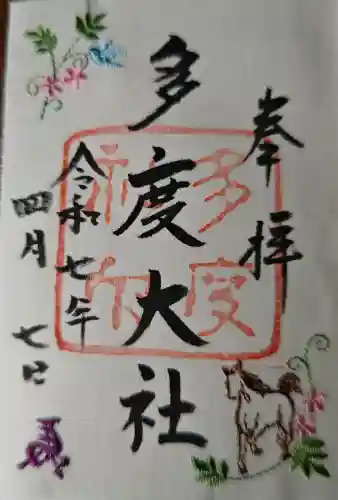 奉拝
多度大社
令和七年
四月七日
多度
社印